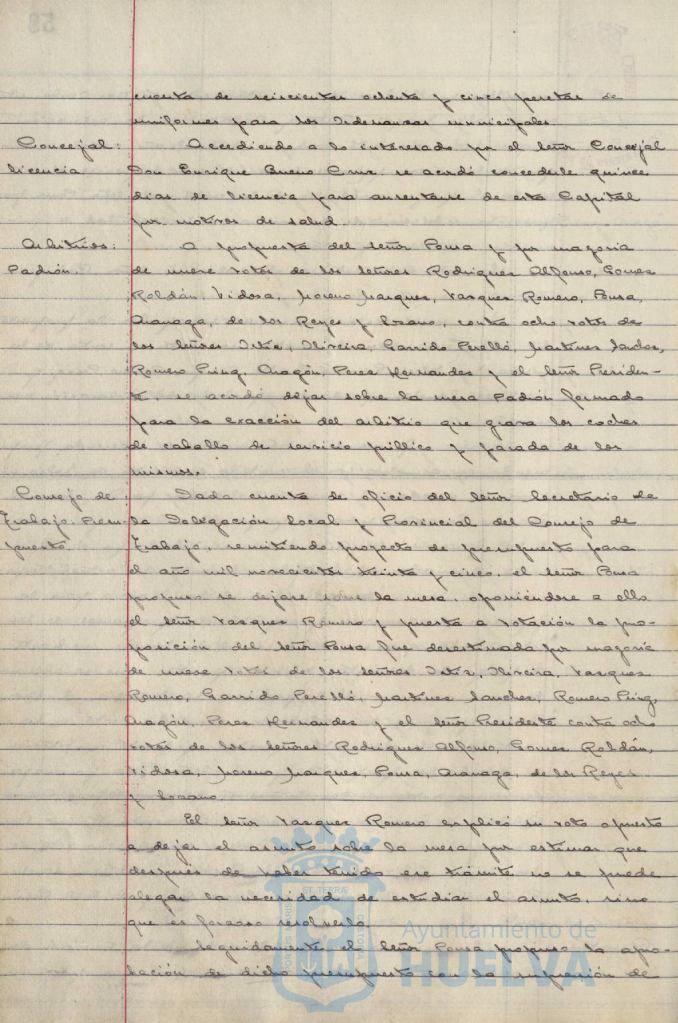 cuenta de seiscientas ochenta y cinco pesetas de
uniformes para los Ordenanzas municipales.
Concejal:
licencia
Accediendo a lo interesado por el Señor Concejal
Don Enrique Bueno Cruz, se acordó concederle quince
dias de licencia para ausentarse de esta Capital
por motivos de salud.
Arbitrios:
Padrón.
A propuesta del Señor Ponsa y por mayoria
de nueve votos de los Señores Rodriguez Alfonso, Gomez
Roldán, Vidosa, Moreno Marquez, Vazquez Romero, Ponsa,
de los Reyes y Lozano, contra ocho votos de
los Señores Oliveira, Garrido Perelló, Martinez Sanchez,
Romero Aragón, Perez Hernandez y el Señor Presiden-
te, se acordó dejar sobre la mesa Padrón formado
para la exacción del arbitrio que grava los coches
de caballo de servicio público y parada de los
mismos.
Consejo de
Trabajo. Presu-
puesto.
Dada cuenta de oficio del Señor Secretario de
la Delegación local y Provincial del Consejo de
Trabajo, remitiendo proyecto de presupuesto para
el año mil novecientos treinta y cinco, el Señor Ponsa
propuso se dejase sobre la mesa, oponiendose a ello
el Señor Vazquez Romero y puesta a votación la pro-
posición del Señor Ponsa fue desestimada por mayoria
de nueve votos de los Señores Oliveira, Vazquez
Romero, Garrido Perelló, Martinez Sanchez, Romero
Aragón, Perez Hernandez y el Señor Presidente contra ocho
votos de los Señores Rodriguez Alfonso, Gomez Roldán,
Vidosa, Moreno Marquez, Ponsa, de los Reyes
y Lozano.
El Señor Vazquez Romero explicó su voto opuesto
a dejar el asunto sobre la mesa por estimar que
despues de haber tenido ese trámite no se puede
alegar la necesidad de estudiar el asunto, sino
que es forzoso resolverlo.
Seguidamente el Señor Ponsa propuso la apro-
bación de dicho presupuesto con la supresión de
Ayuntamiento de
HUELVA